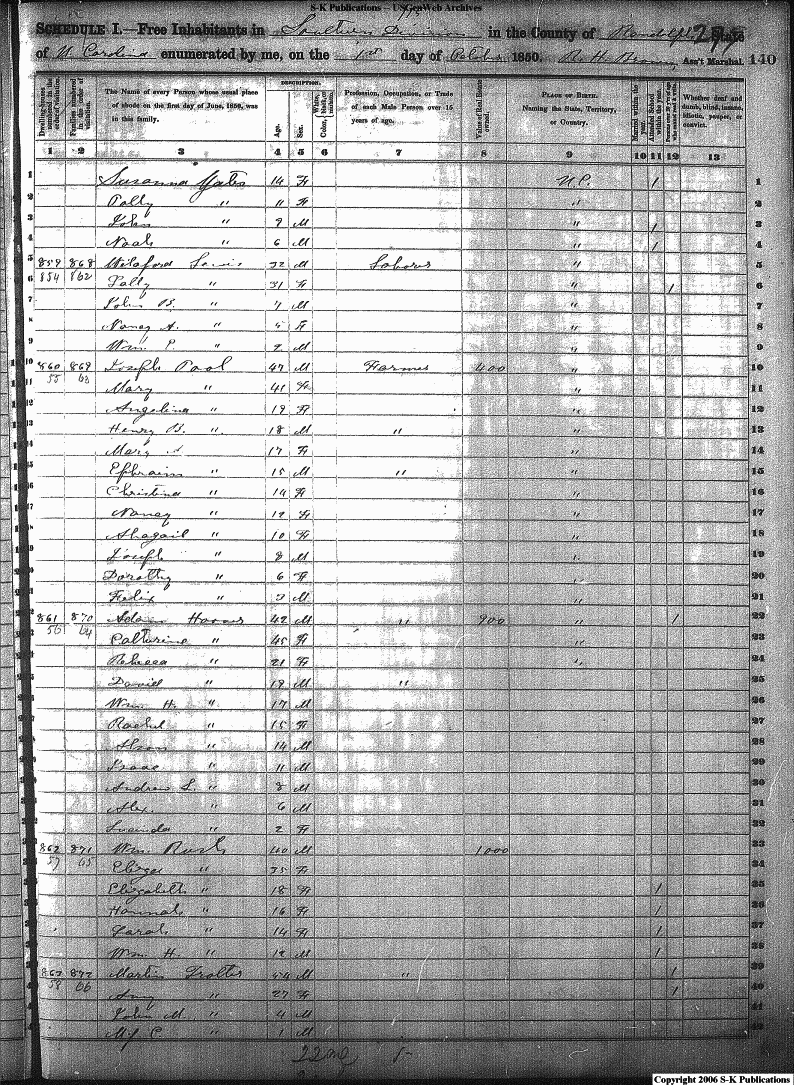 S-K Publications -- USGenWeb Archives
SCHEDULE I.—Free Inhabitants in Southern Division in the County of Randolph State
277
of N. Carolina enumerated by me, on the 1st day of October 1850. Ass't Marshal 140
DESCRIPTION.
Dwelling-houses numbered in the order of visitation. Families numbered in the order of visitation. The Name of every Person whose usual place of abode on the first day of June, 1850, was in this family. Age. Sex. Color, White, black, or mulatto. Profession, Occupation, or Trade of each Male Person over 15 years of age. Value of Real Estate owned. PLACE OF BIRTH. Naming the State, Territory, or Country. Married within the year. Attended School within the year. Persons over 20 y'rs of age who cannot read & write. Whether deaf and dumb, blind, insane, idiotic, pauper, or convict.
1 2 3 4 5 6 7 8 9 10 11 12 13
1 Susanna Yates 14 F N.C. / 1
2 Polly " 11 F " 2
3 John " 9 M " / 3
4 Noah " 6 M " / 4
5 859 868 Wilaford Lewis 32 M Laborer " 5
6 854 862 31 F " / 6
7 John B. " 7 M " 7
8 Nancy A. " F " 8
9 Wm. P. " 2 M " 9
10 860 869 Joseph Pool 47 M Farmer 400 " 10
11 55 63 Mary " 41 F " 11
12 Angelina " 19 F " 12
13 Henry B. " 18 M " " 13
14 Mary 17 F " 14
15 Ephraim " 15 M " " 15
16 Christina " 14 F " 16
17 Nancy " 12 F " 17
18 Abagail " 10 F " 18
19 Joseph " 8 M " 19
20 Dorothy " 6 F " 20
21 Felix " M " 21
22 861 870 Adam 42 M " 900 " / 22
23 56 64 Catherine " 45 F " 23
24 Rebecca " 21 F " 24
25 David " 19 M " 25
26 Wm. H. " 17 M 26
27 Rachel " 15 F 27
28 " 14 M 28
29 Isaac " 11 M 29
30 Andrew L. " 8 M 30
31 Alex. " 6 M 31
32 Lucinda " 2 F 32
33 862 871 Wm. Rush 40 M 1000 33
34 57 65 " 35 F 34
35 Elizabeth " 18 F / 35
36 Hannah " 16 F / 36
37 Sarah " 14 F / 37
38 Wm. H. " 12 M / 38
39 863 872 Martin Trotter M " / 39
40 58 66 Amy " 27 F / 40
41 John M. " 4 M 41
42 " 1 M 42
22
Copyright 2006 S-K Publications